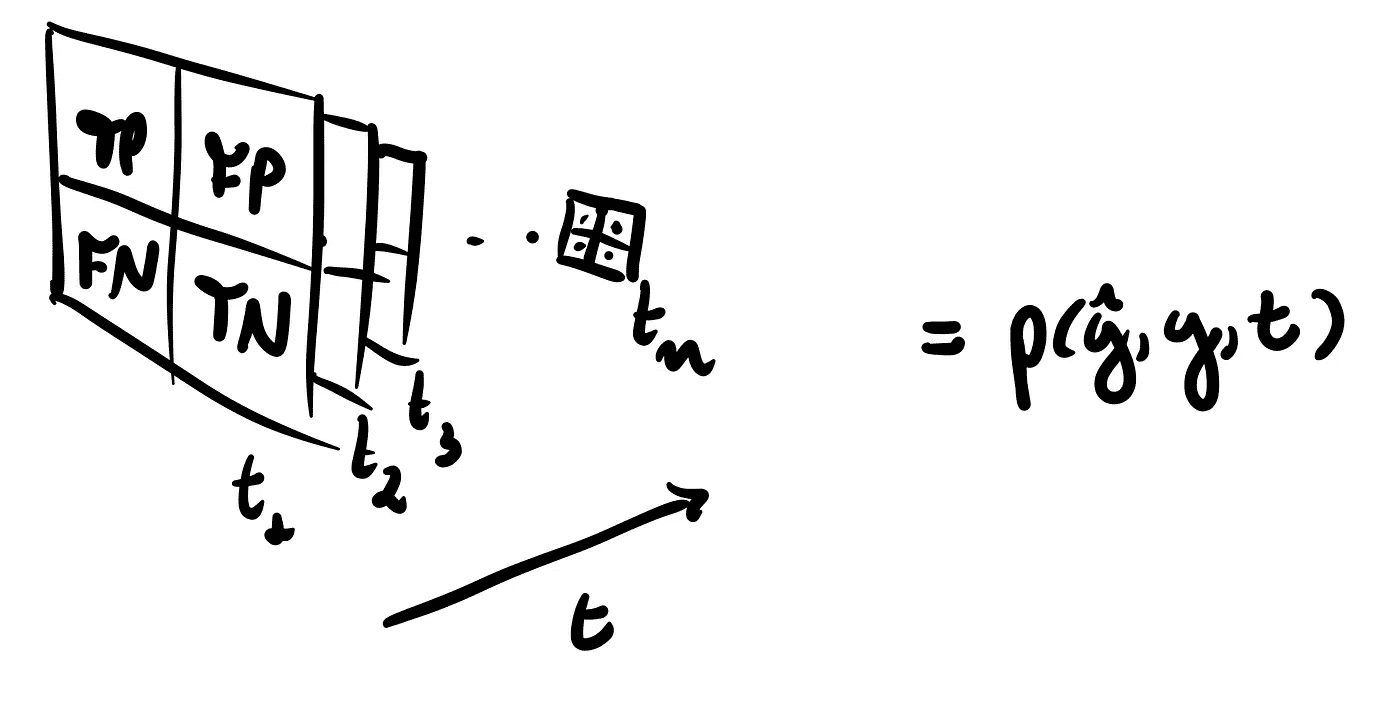 TP FP
FN TN
t₁ t₂ t₃ . . tₙ
t
= p(ŷ, y, t)